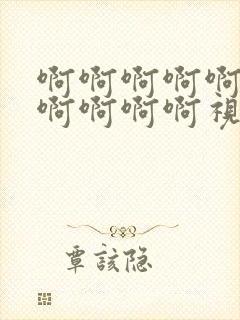 啊啊啊啊啊
啊啊啊啊視
覃該隐